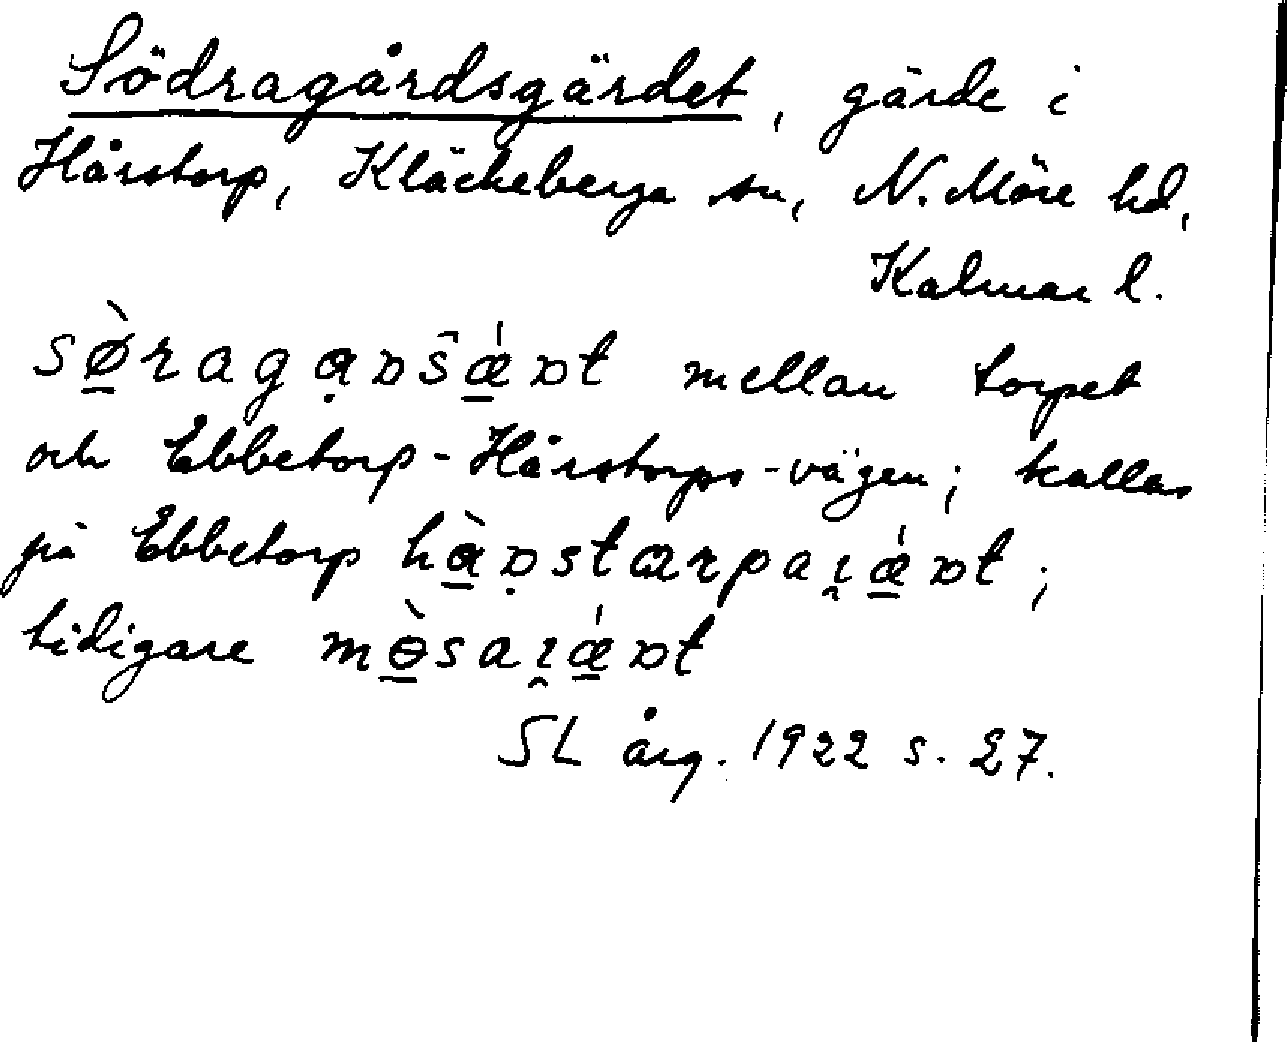 Södragårdsgärdet, gärde i
Hårstorp, Kläckeberga sn, N. Möre hd,
Kalmar l.
sø̠̀ragɑ̣ɒŝǽ̠ɒt mellan torpet
och Ebbetorp-Hårstorps-vägen; kallas
på Ebbetorp hɑ̠̀ɒ̣stɑrpaɪ̯ǽ̠ɒt;
tidigare mɵ̠̀saɪ̯ǽ̠ɒt
SL årg. 1922 s. 27.